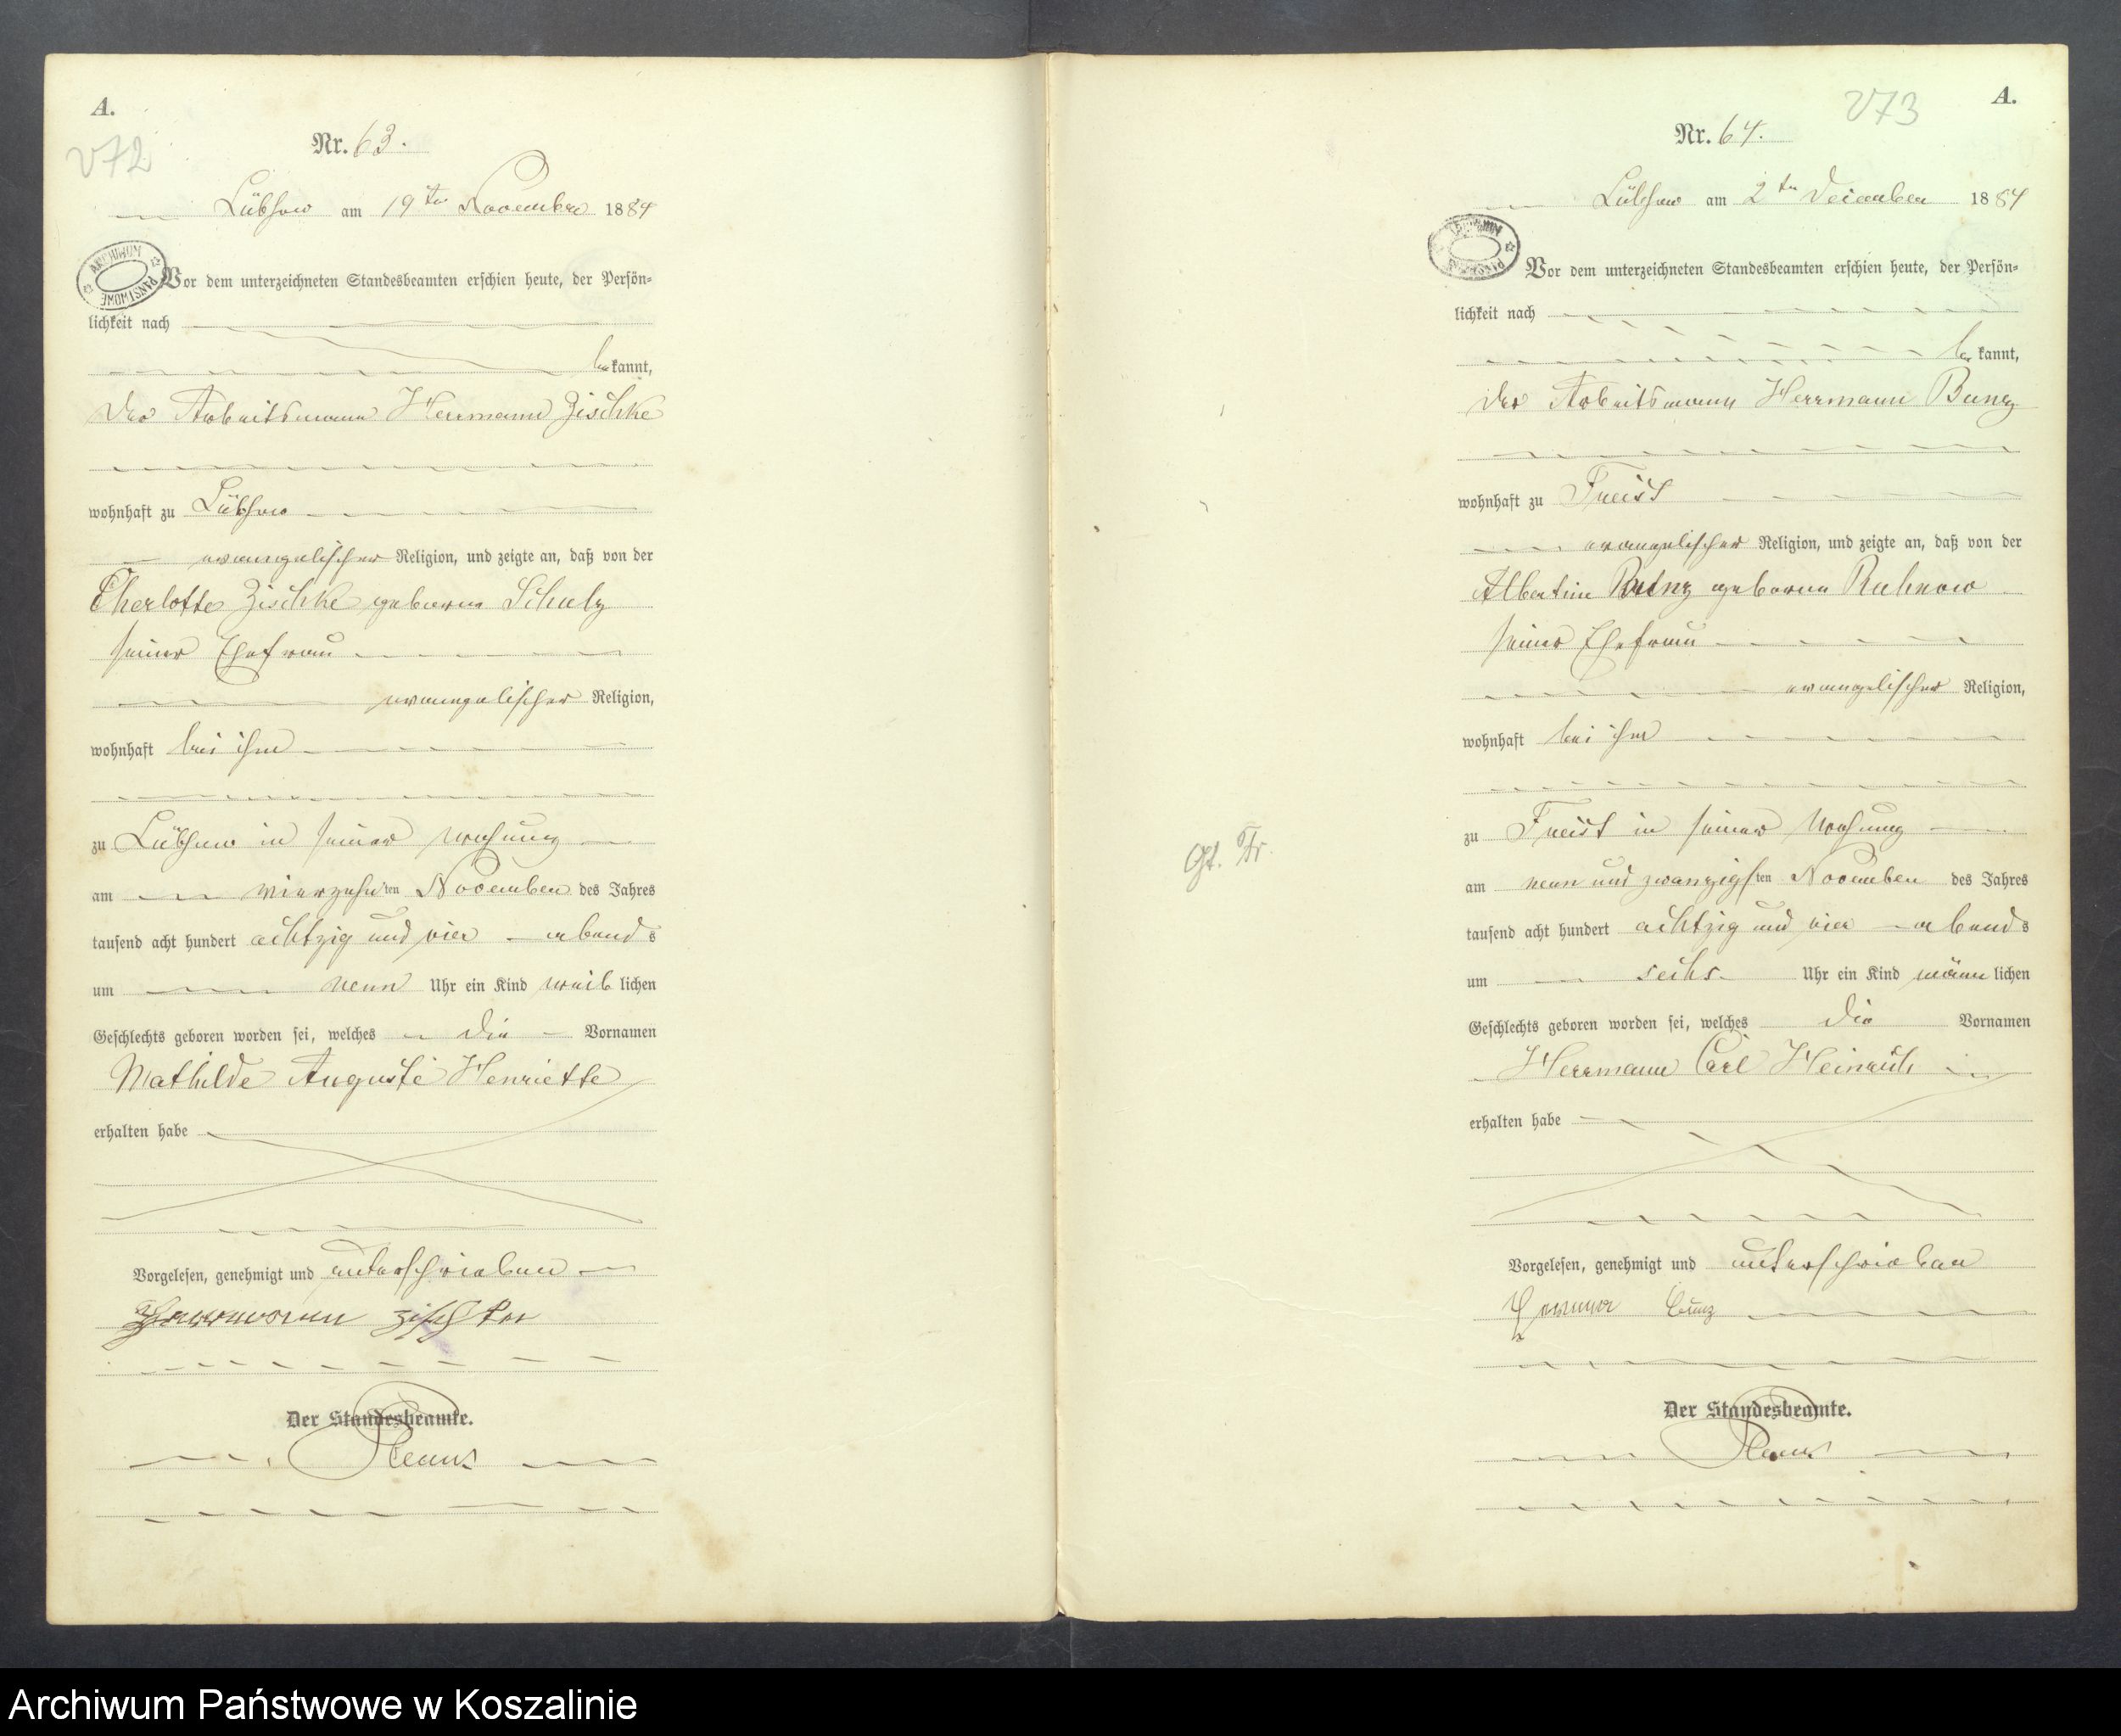 A.
V72
Nr. 63.
Lübsow am 19ten November 1884
ARCHIWUM PAŃSTWOWE
Vor dem unterzeichneten Standesbeamten erschien heute, der Persön-
lichkeit nach
be kannt,
der Arbeitsmann Herrmann Zischke
wohnhaft zu Lübsow
evangelischer Religion, und zeigte an, daß von der
Charlotte Zischke geborne Schulz
seiner Ehefrau
evangelischer Religion,
wohnhaft bei ihm
zu Lübsow in seiner Wohnung
am vierzehnten November des Jahres
tausend acht hundert achtzig und vier abends
um neun Uhr ein Kind weiblichen
Geschlechts geboren worden sei, welches die Vornamen
Mathilde Auguste Henriette
erhalten habe
Vorgelesen, genehmigt und unterschrieben
Herrmann Zischke
Der Standesbeamte.
A.
V73
Nr. 64.
Lübsow am 2ten December 1884
ARCHIWUM PAŃSTWOWE
Vor dem unterzeichneten Standesbeamten erschien heute, der Persön-
lichkeit nach
be kannt,
der Arbeitsmann Herrmann Bunz
wohnhaft zu Freist
evangelischer Religion, und zeigte an, daß von der
Albertine Bunz geborne Ruhnow
seiner Ehefrau
evangelischer Religion,
wohnhaft bei ihm
zu Freist in seiner Wohnung
am neun und zwanzigsten November des Jahres
tausend acht hundert achtzig und vier abends
um sechs Uhr ein Kind männlichen
Geschlechts geboren worden sei, welches die Vornamen
Herrmann Carl Heinrich
erhalten habe
Vorgelesen, genehmigt und unterschrieben
Bunz
Der Standesbeamte.
Archiwum Państwowe w Koszalinie